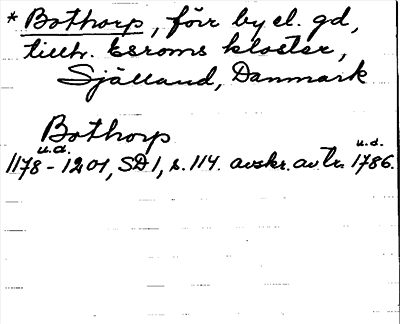 * Bothorp, förr by el. gd,
tillh. Esroms kloster,
Själland, Danmark
Bothorp
u.d. u.d.
1178-1201, SD 1, s. 114. avskr. av tr. 1786.